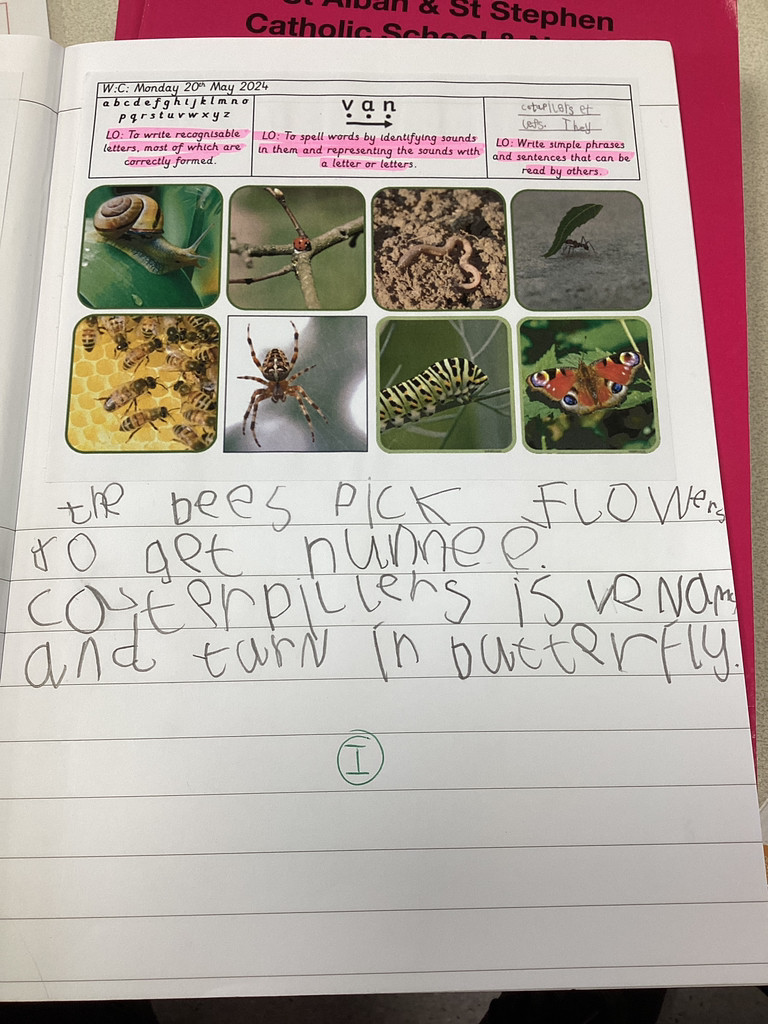 St Alban & St Stephen
Catholic School & N
W:C: Monday 20th May 2024
a b c d e f g h i j k l m n o
p q r s t u v w x y z
LO: To write recognisable
letters, most of which are
correctly formed.
van
LO: To spell words by identifying sounds
in them and representing the sounds with
a letter or letters.
They
LO: Write simple phrases
and sentences that can be
read by others.
the bees pick flowers
to get nunnee.
caterpillers is venams
and turn in butterfly.
I